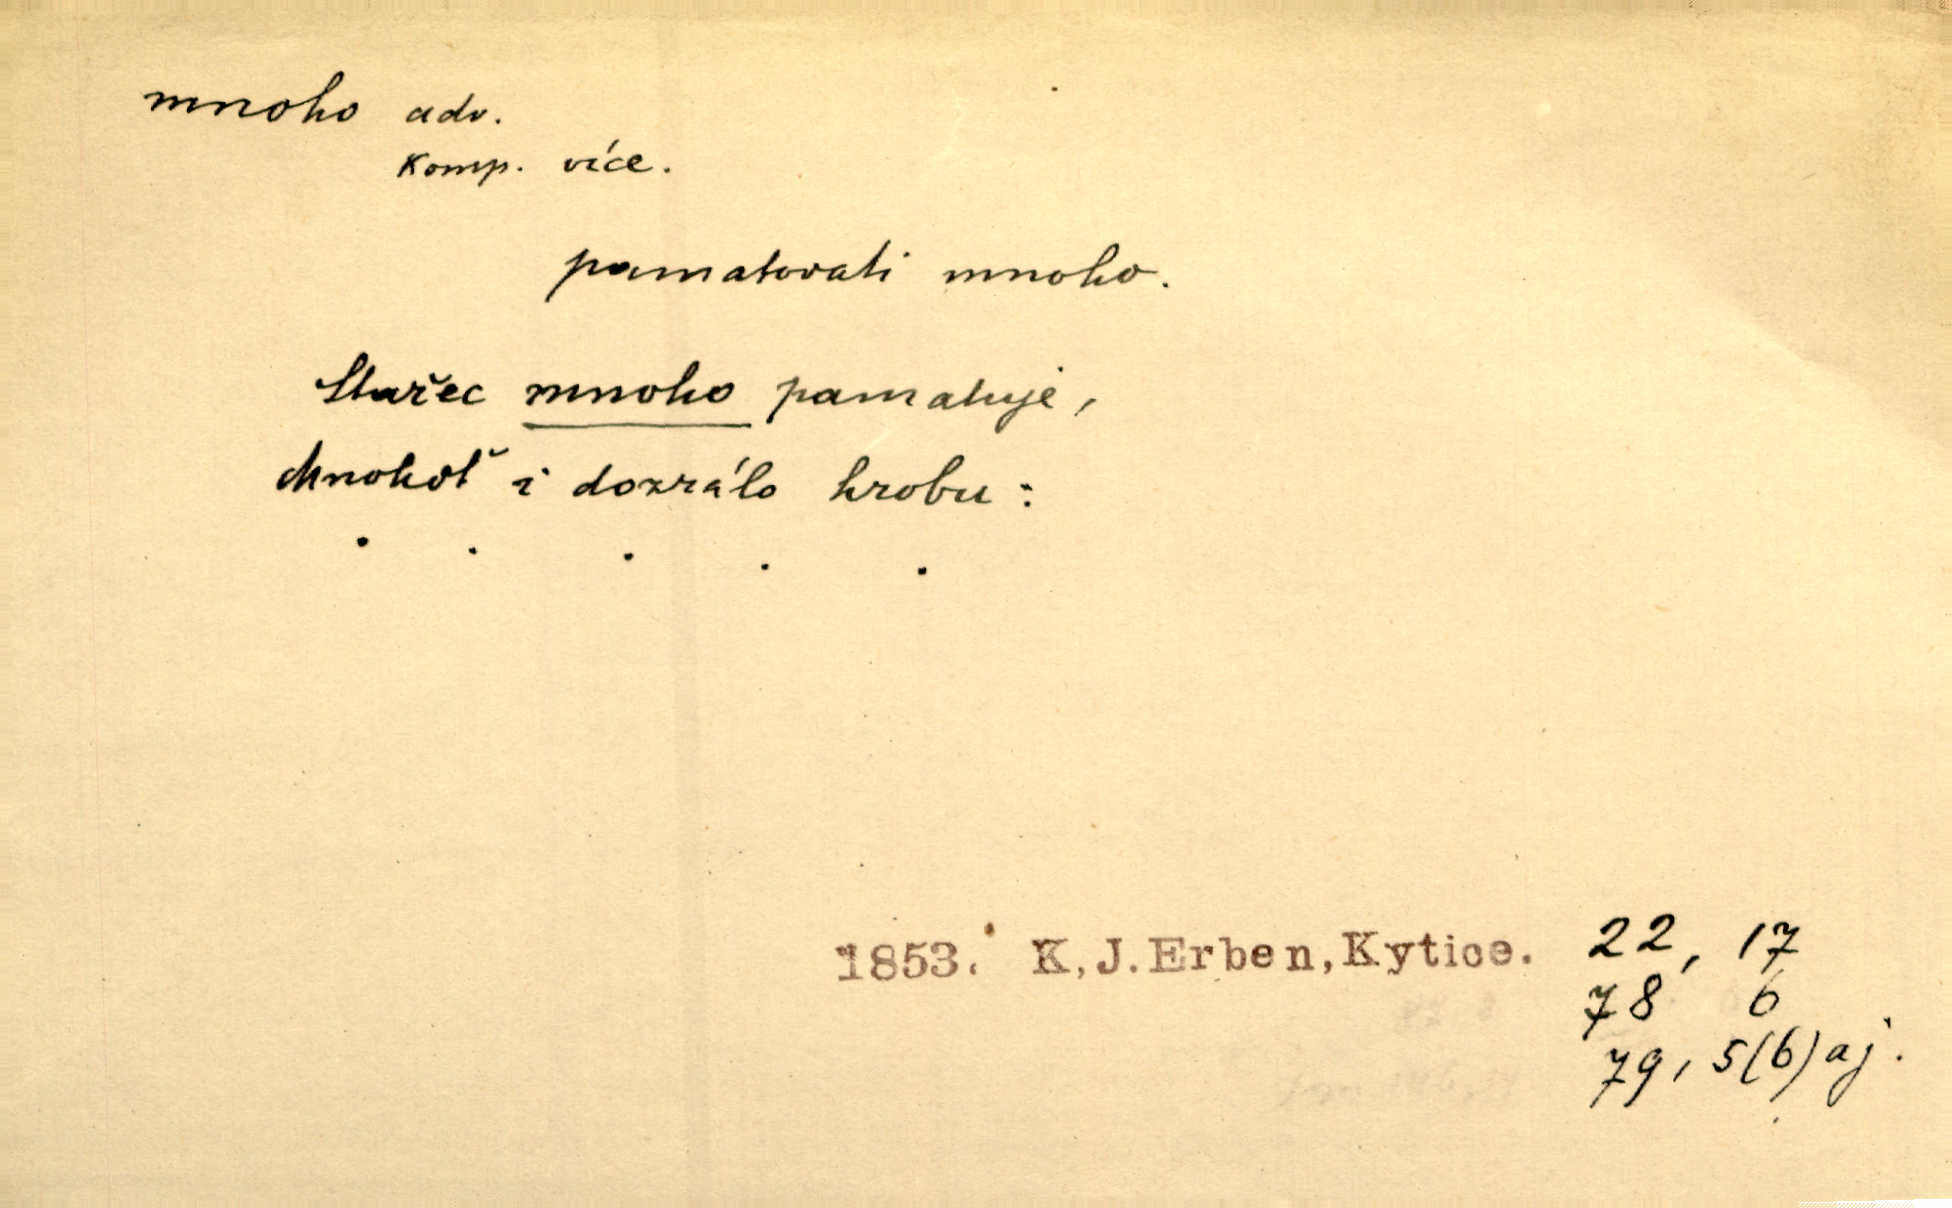 mnoho adv.
Komp. více.
pamatovati mnoho.
Stařec mnoho pamatuje,
Mnohoť i dozrálo hrobu:
. . . . .
1853. K,J.Erben,Kytice. 22, 17
78 6
79, 5(6) aj.